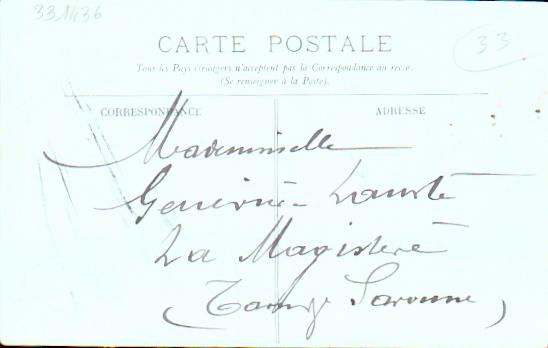 331436
33
CARTE POSTALE
Tous les Pays étrangers n'acceptent pas la Correspondance au recto.
(Se renseigner à la Poste).
CORRESPONDANCE
ADRESSE
Mademoiselle
Geneviève
La Magistère
(Tarn & Garonne)